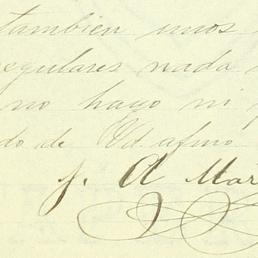 tambien unos
regulares nada
no hayo ni
do de Vd afmo
J. A Mar